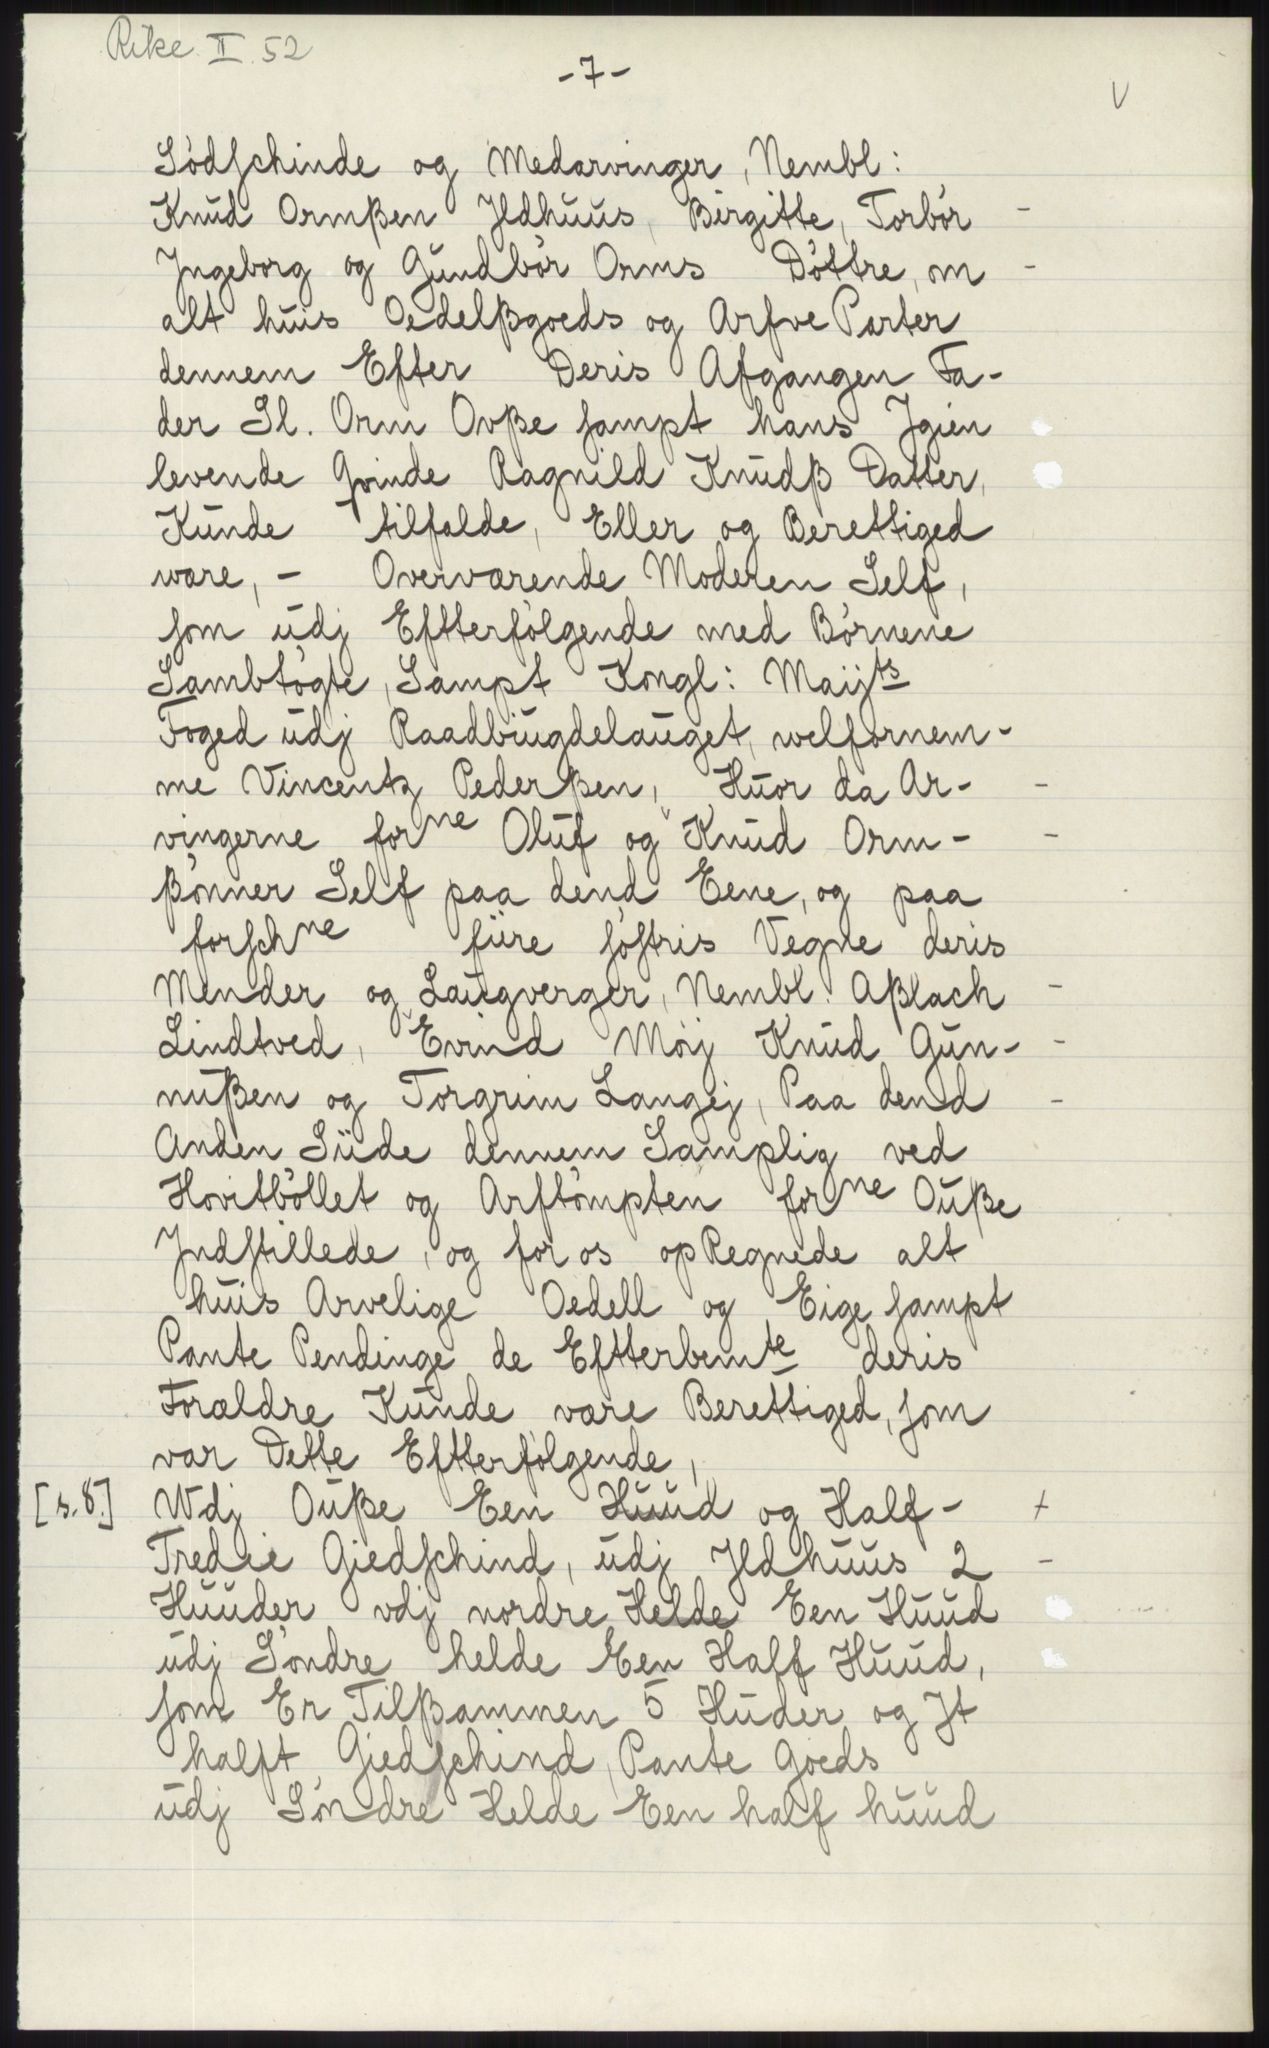 Rike II 52
-7-
V
Södschinde og Medarvinger, Nembl:
Knud Ormßen Jldhuus, Birgitte, Torbör -
Jngeborg og Gundbör Orms Döttre, om -
alt huis Oedelßgoeds og Arfve Parter
dennem Efter Deris Afgangen Fa-
der Sl. Orm Ovße sampt hans Jgien
levende Qvinde Ragnild Knudß Datter,
Kunde tilfalde, Eller og Berettiged
være, - Overværende Moderen Self,
som udj Eftterfölgende med Börnene
Sambtögte, Sampt Kongl: Maijts
Foged udj Raadbiugdelauget, welfornem-
me Vincentz Pederßen, Huor da Ar- -
vingerne forne Oluf og Knud Orm- -
ßönner Self paa dend Eene, og paa
forschne fiire söstris Vegne deris
Mender og Laugverger, Nembl: Aßlach -
Lindtved, Evind Möj Knud Gun- -
nußen og Torgrim Langej, Paa dend -
Anden Siide dennem Samplig ved
Hovitböllet og Arftömpten forne Ouße
Jndstillede, og for os opRegnede alt
huis Arvelige Oedell og Eige sampt
Pante Pendinge de Eftterbemte deris
Forældre Kunde være Berettiged, som
var Dette Eftterfölgende,
[s.8.] Wdj Ouße Een Huud og Half- +
Tredie Giedschind, udj Jldhuus 2 -
Huuder vdj nordre Helde Een Huud
udj Söndre helde Een Half Huud,
som Er Tilßammen 5 Huder og Jt
halft Giedschind, Pante Goeds
udj Söndre Helde Een half huud